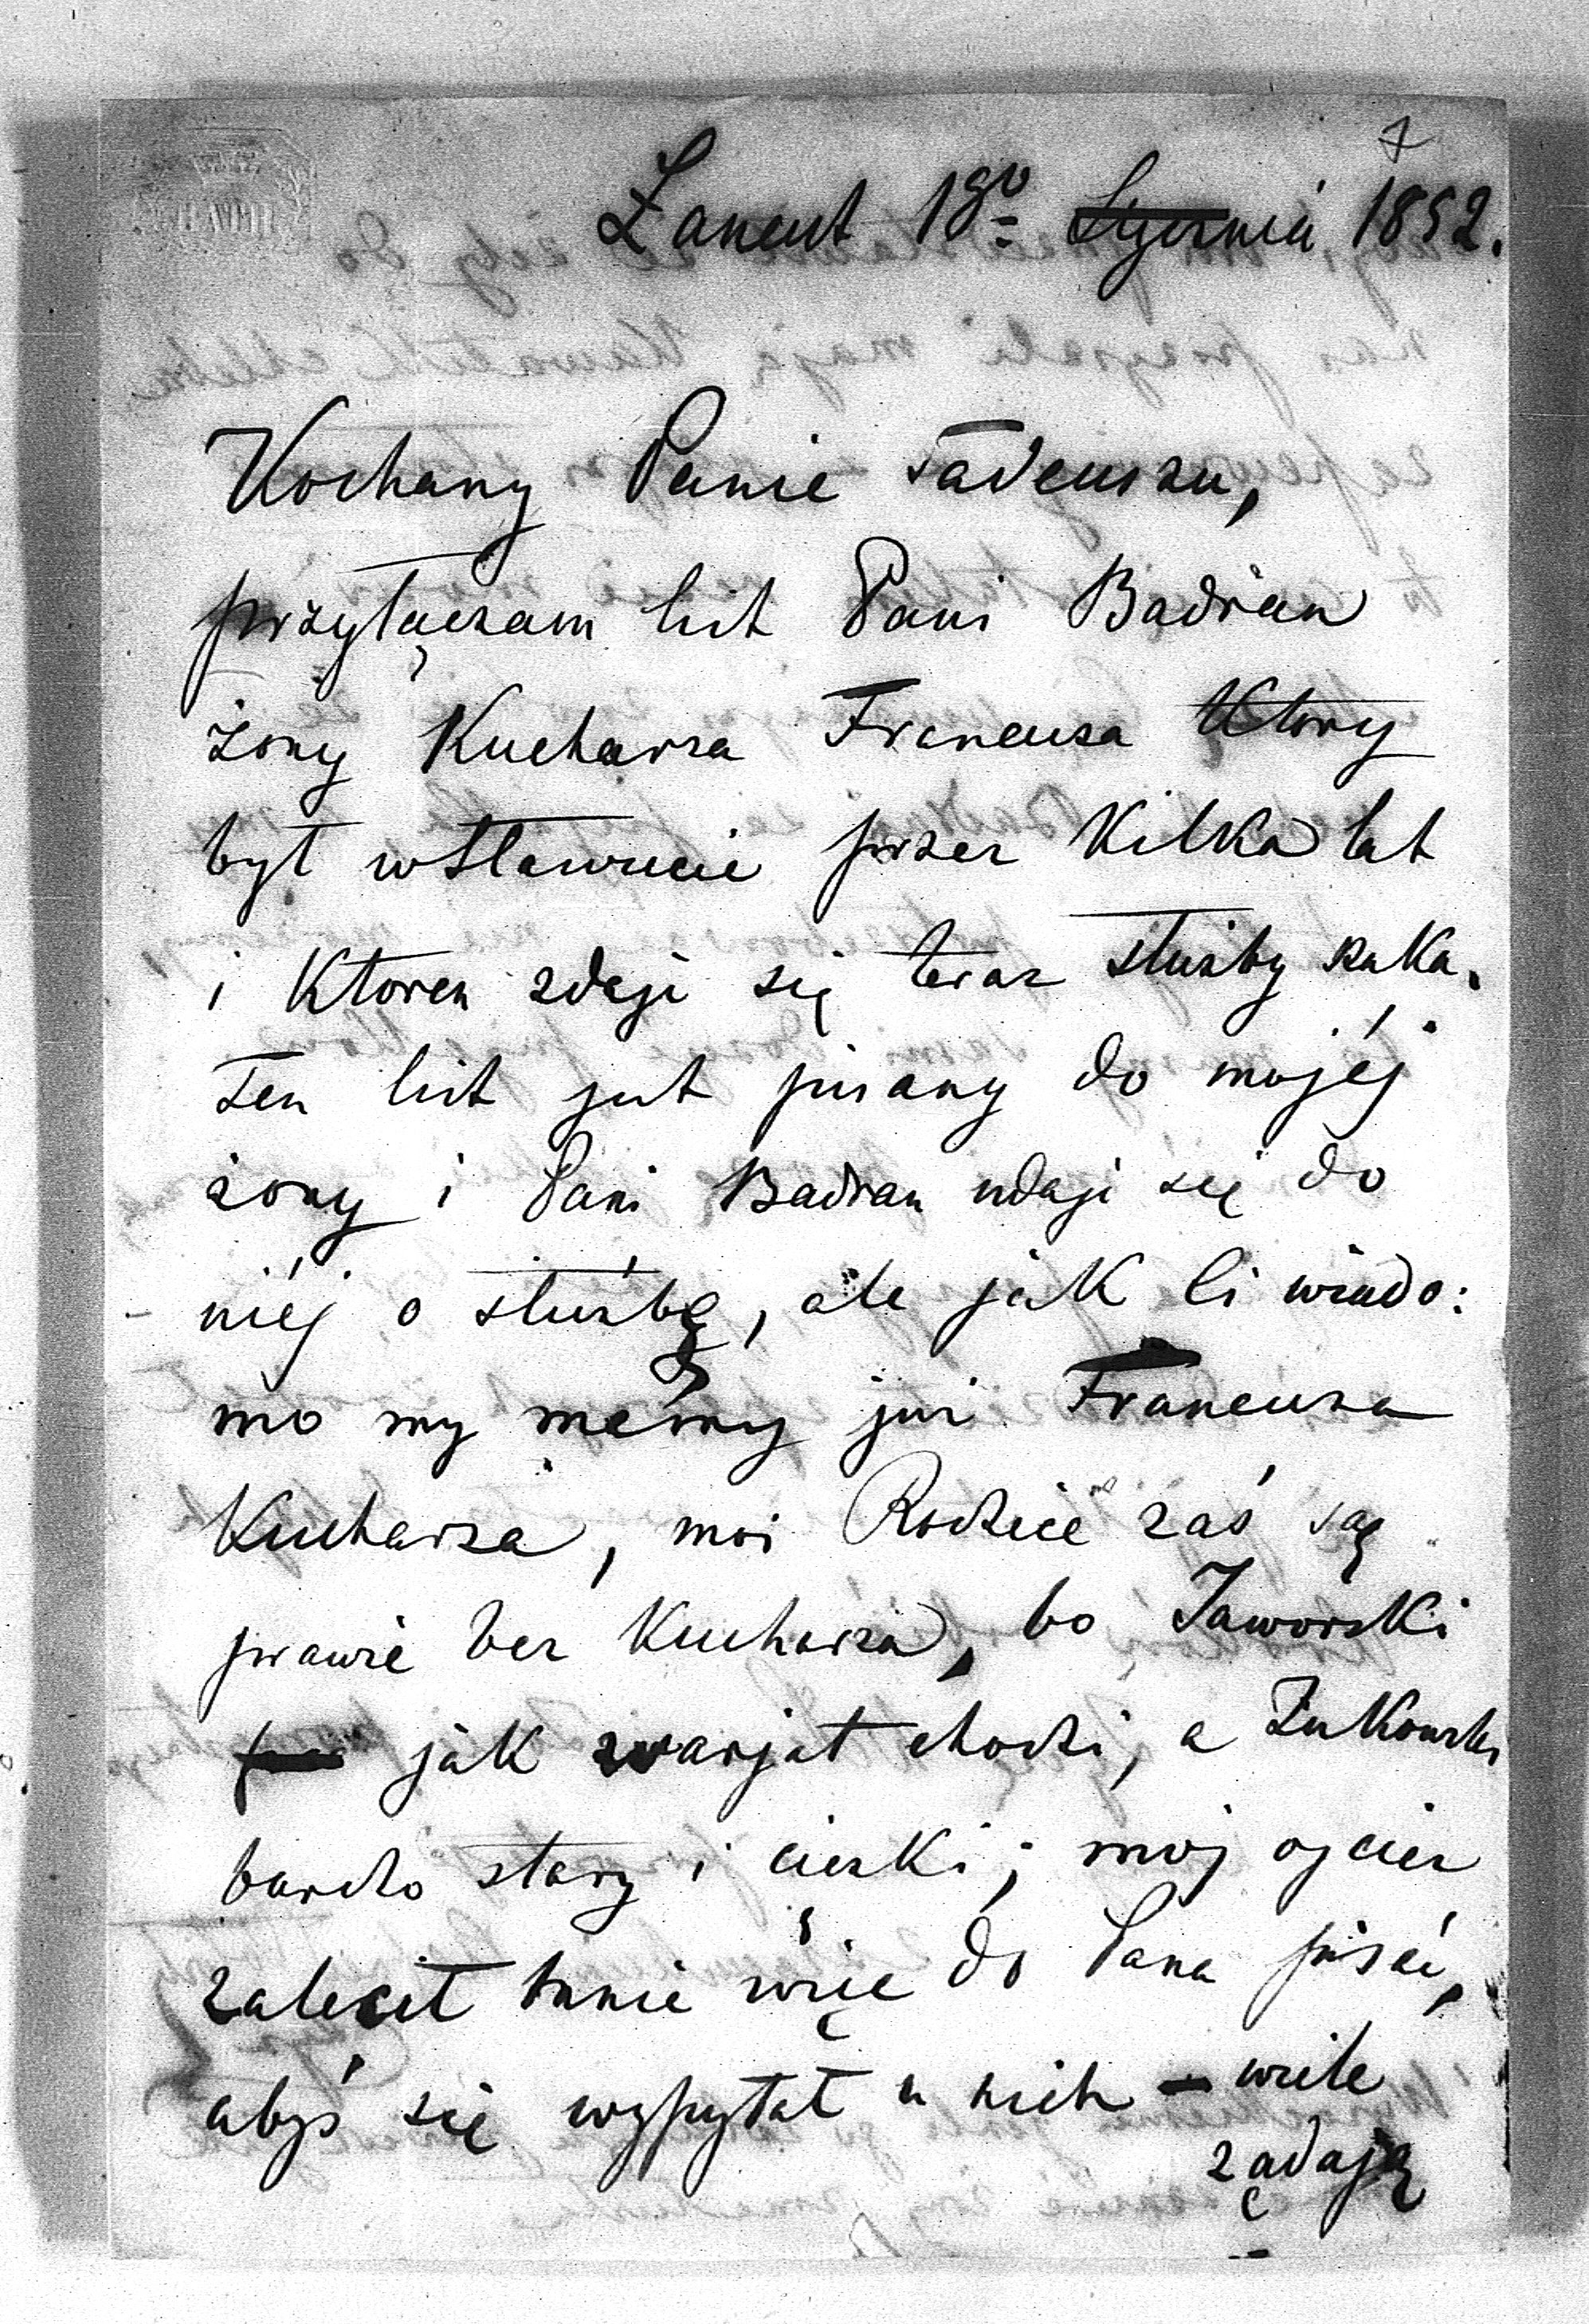 7
Łancut 18go Stycznia 1852.
Kochany Panie Tadeuszu,
przytączam list Pani Badran
żony Kucharza Francuza Ktory
był w Sławucie przez Kilka lat
i Ktoren zdaje się teraz służby szuka.
Ten list jest pisany do mojéj
żony i Pani Badran udaje się do
niéj o służbę, ale jak Ci wiado:
mo my mamy już Francuza
Kucharza, moi Rodzice zaś są
prawie bez Kucharza, bo Jaworski
jak warjat chodzi, a Żukowski
bardzo stary i cieżki; moj ojciec
zalecił mnie więc do Pana pisać,
abyś się wypytał u nich – wiele
żądają